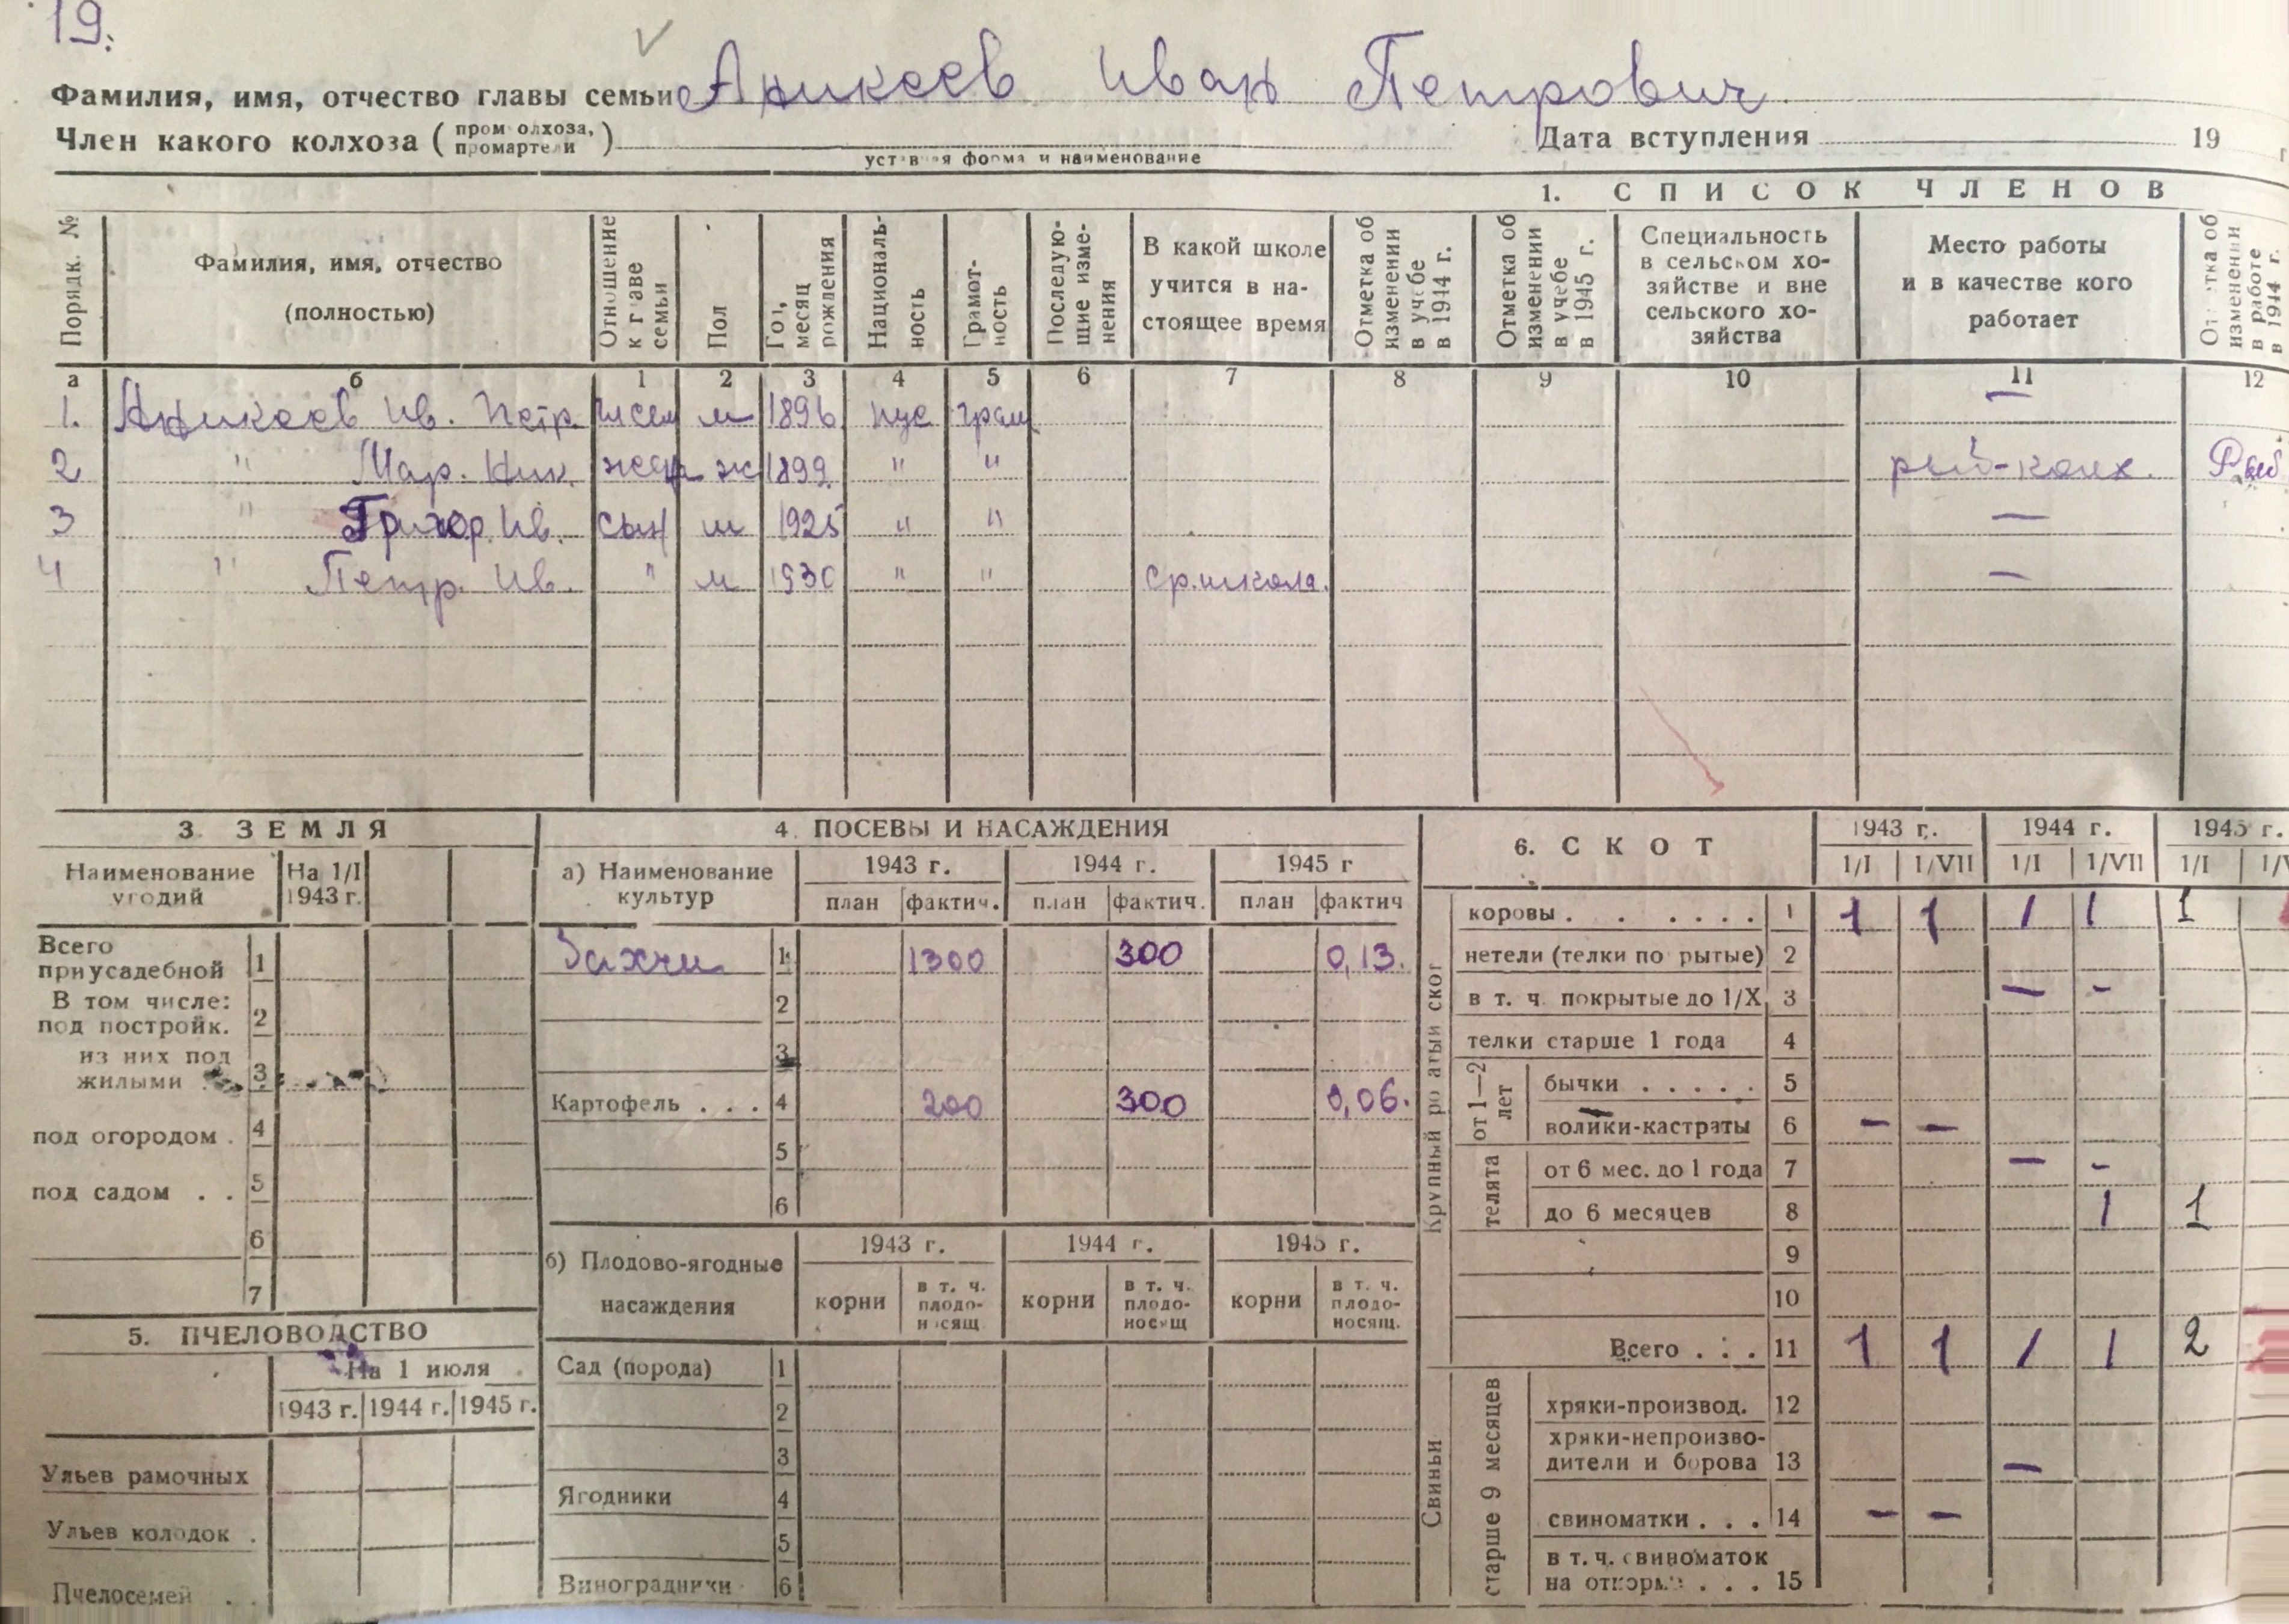 19.
Фамилия, имя, отчество главы семьи Аникеев Иван Петрович
Член какого колхоза ( пром олхоза, промартели )
уставная форма и наименование
Дата вступления 19
1. СПИСОК ЧЛЕНОВ
Порядк. №
Фамилия, имя, отчество (полностью)
Отношение к главе семьи
Пол
Год, месяц рождения
Националь-ность
Грамот-ность
Последую-щие изме-нения
В какой школе учится в на-стоящее время
Отметка об изменении в учебе в 1944 г.
Отметка об изменении в учебе в 1945 г.
Специальность в сельском хо-зяйстве и вне сельского хо-зяйства
Место работы и в качестве кого работает
Отметка об изменении в работе в 1944 г.
а б 1 2 3 4 5 6 7 8 9 10 11 12
1. Аникеев Ив. Петр. м 1896 рус грам —
2 " Мар. Ник. жена ж 1899 " "
3 " Григор. Ив. сын м 1925 " " —
4 " Петр. Ив. " м 1930 " " ср. школа. —
3. ЗЕМЛЯ
Наименование угодий
На 1/I 1943 г.
Всего приусадебной 1
В том числе: под постройк. 2
из них под жилыми 3
под огородом . 4
под садом . . 5
6
7
5. ПЧЕЛОВОДСТВО
На 1 июля
1943 г. 1944 г. 1945 г.
Ульев рамочных
Ульев колодок .
Пчелосемей . .
4. ПОСЕВЫ И НАСАЖДЕНИЯ
а) Наименование культур
1943 г. 1944 г. 1945 г
план фактич. план фактич. план фактич
1 1300 300 0,13.
2
3
Картофель . . . 4 200 300 0,06.
5
6
б) Плодово-ягодные насаждения
1943 г. 1944 г. 1945 г.
корни в т. ч. плодо-носящ корни в т. ч. плодо-носящ корни в т. ч. плодо-носящ.
Сад (порода) 1
2
3
Ягодники 4
5
Виноградники 6
6. СКОТ
1943 г. 1944 г. 1945 г.
1/I 1/VII 1/I 1/VII 1/I
Крупный рогатый скот
коровы . . . . . . 1 1 1 1 1 1
нетели (телки покрытые) 2
в т. ч. покрытые до 1/X 3 — -
телки старше 1 года 4
от 1—2 лет
бычки . . . . . 5
волики-кастраты 6 — —
телята
от 6 мес. до 1 года 7 — -
до 6 месяцев 8 1 1
9
10
Всего . . . 11 1 1 1 1 2
Свиньи
старше 9 месяцев
хряки-производ. 12
хряки-непроизво-дители и борова 13 —
свиноматки . . . 14 — —
в т. ч. свиноматок на откорме . . . 15